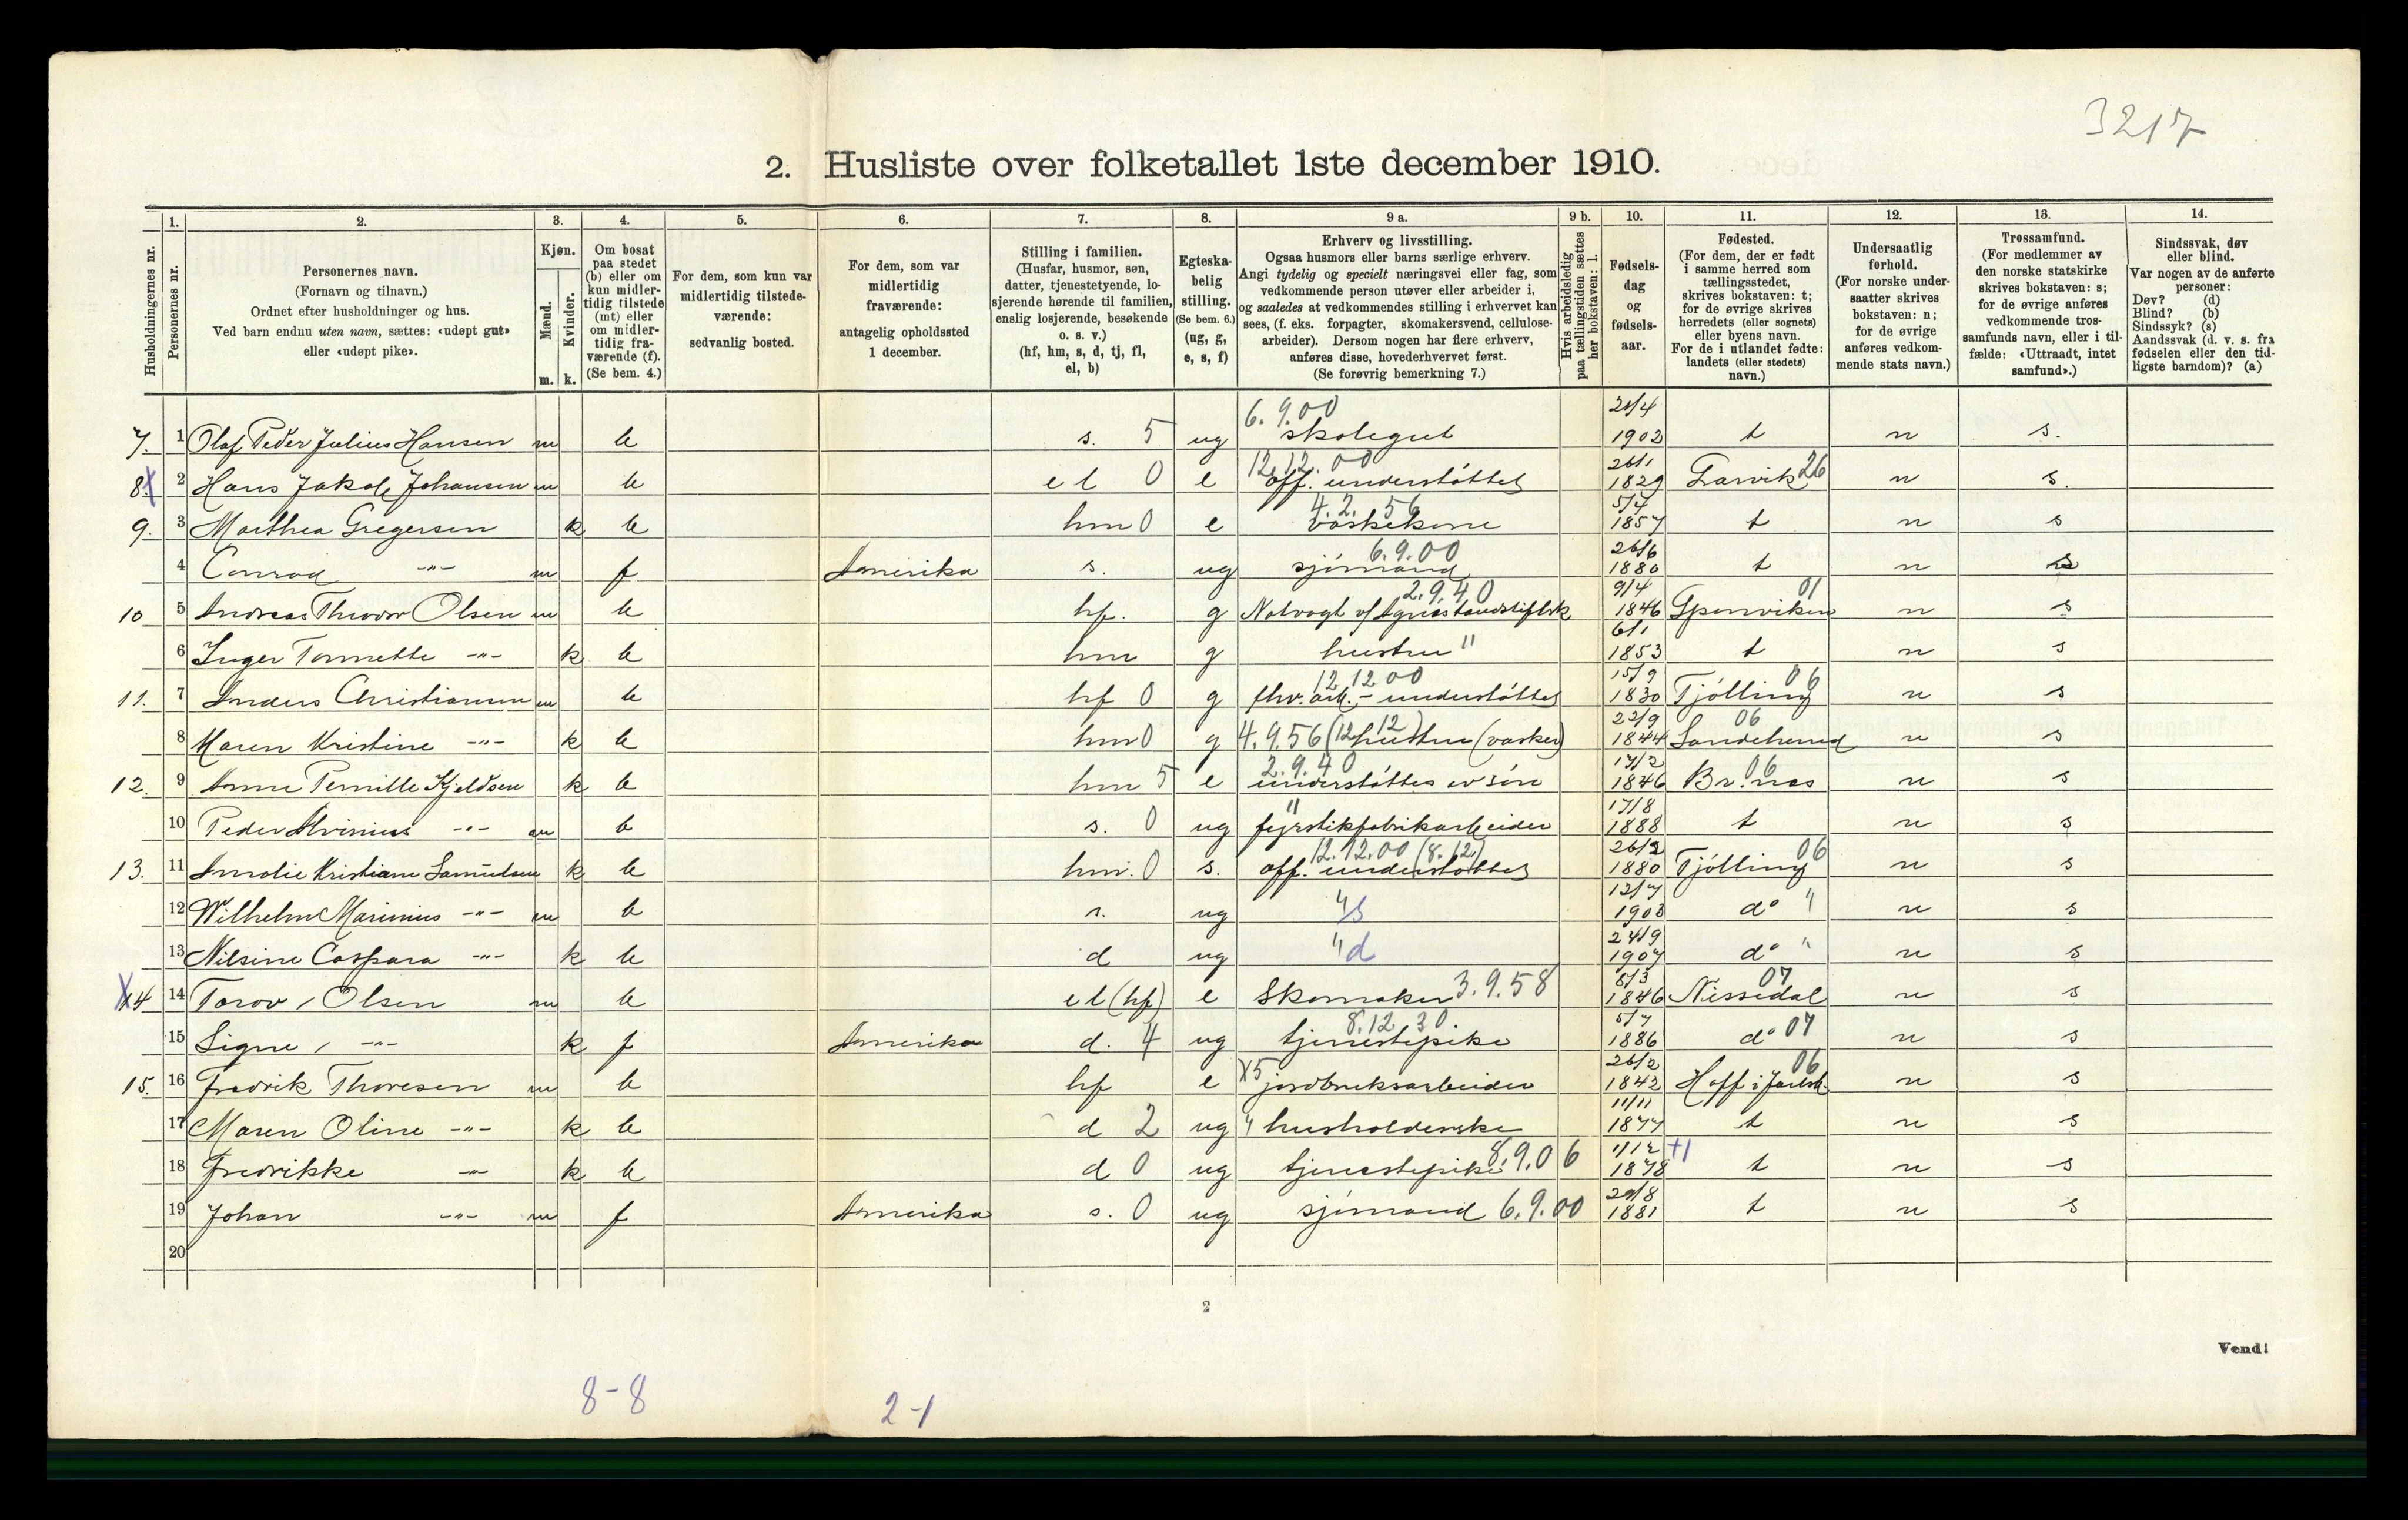 3217
2. Husliste over folketallet 1ste december 1910.
Husholdningernes nr.
1.
Personernes nr.
2.
Personernes navn.
(Fornavn og tilnavn.)
Ordnet efter husholdninger og hus.
Ved barn endnu uten navn, sættes: «udøpt gut»
eller «udøpt pike».
3.
Kjøn.
Mænd.
Kvinder.
m.
k.
4.
Om bosat
paa stedet
(b) eller om
kun midler-
tidig tilstede
(mt) eller
om midler-
tidig fra-
værende (f).
(Se bem. 4.)
5.
For dem, som kun var
midlertidig tilstede-
værende:
sedvanlig bosted.
6.
For dem, som var
midlertidig
fraværende:
antagelig opholdssted
1 december.
7.
Stilling i familien.
(Husfar, husmor, søn,
datter, tjenestetyende, lo-
sjerende hørende til familien,
enslig losjerende, besøkende
o. s. v.)
(hf, hm, s, d, tj, fl,
el, b)
8.
Egteska-
belig
stilling.
(Se bem. 6.)
(ug, g,
e, s, f)
9 a.
Erhverv og livsstilling.
Ogsaa husmors eller barns særlige erhverv.
Angi tydelig og specielt næringsvei eller fag, som
vedkommende person utøver eller arbeider i,
og saaledes at vedkommendes stilling i erhvervet kan
sees, (f. eks. forpagter, skomakersvend, cellulose-
arbeider). Dersom nogen har flere erhverv,
anføres disse, hovederhvervet først.
(Se forøvrig bemerkning 7.)
9 b.
Hvis arbeidsledig
paa tællingstiden sættes
her bokstaven: l.
10.
Fødsels-
dag
og
fødsels-
aar.
11.
Fødested.
(For dem, der er født
i samme herred som
tællingsstedet,
skrives bokstaven: t;
for de øvrige skrives
herredets (eller sognets)
eller byens navn.
For de i utlandet fødte:
landets (eller stedets)
navn.)
12.
Undersaatlig
forhold.
(For norske under-
saatter skrives
bokstaven: n;
for de øvrige
anføres vedkom-
mende stats navn.)
13.
Trossamfund.
(For medlemmer av
den norske statskirke
skrives bokstaven: s;
for de øvrige anføres
vedkommende tros-
samfunds navn, eller i til-
fælde: «Uttraadt, intet
samfund».)
14.
Sindssvak, døv
eller blind.
Var nogen av de anførte
personer:
Døv? (d)
Blind? (b)
Sindssyk? (s)
Aandssvak (d. v. s. fra
fødselen eller den tid-
ligste barndom)? (a)
7. 1 Olaf Peder Julius Hansen m b s. 5 ug 6.9.00 skolegut 1902 t n s.
8. 2 Hans Jakob Johansen m b el 0 e 12.12.00 off. understøttet 26/1 1829 Larvik 26 n s.
9. 3 Marthea Gregersen k b hm 0 e 4.2.56 vaskekone 5/7 1857 t n s
4 Conrad -"- m f Amerika s. ug 6.9.00 sjømand 26/6 1880 t n s
10 5 Andreas Theodor Olsen m b hf. g 2.9.40 9/4 1846 01 n s
6 Inger Tonnette -"- k b hm g hustru " 6/1 1853 t n s
11. 7 Anders Christiansen m b hf 0 g 12 12 00 fhv. arb. - understøttet 15/9 1830 Tjølling 06 n s
8 Maren Kristine -"- k b hm 0 g 4.9.56 (12 12) hustru (vasker) 22/9 1844 Sandeherred 06 n s
12. 9 Anne Pernille Kjeldsen k b hm 5 e 2.9.40 understøttes av søn 17/2 1846 Br.nes 06 n s
10 Peder -"- m b s. 0 ug " fyrstikfabrikarbeider 17/8 1888 t n s
13. 11 Amalie Kristiane Samuelsen k b hm. 0 s. 12.12.00 (8.12.) off. understøttet 26/2 1880 Tjølling 06 n s
12 Wilhelm Marinius -"- m b s. ug " s 12/7 1903 do " n s
13 Nilsine Caspara -"- k b d ug " d 24/9 1907 do " n s
X14 14 Torov Olsen m b el (hf) e Skomaker 3.9.58 8/3 1846 Nissedal 07 n s
15 Signe -"- k f Amerika d. 4 ug 8.12 30 tjenestepike 5/7 1886 do 07 n s
15. 16 Fredrik Thoresen m b hf e X5 jordbruksarbeider 26/2 1842 Hoff i Jarlsb. 06 n s
17 Maren Oline -"- k b d 2 ug " husholderske 11/11 1877 t n s
18 Fredrikke -"- k b d 0 ug tjenestepike 8.9.06 1/12 1878 +1 t n s
19 Johan -"- m f Amerika s. 0 ug sjømand 6.9.00 29/8 1881 t n s
20
2
Vend!
8-8
2-1